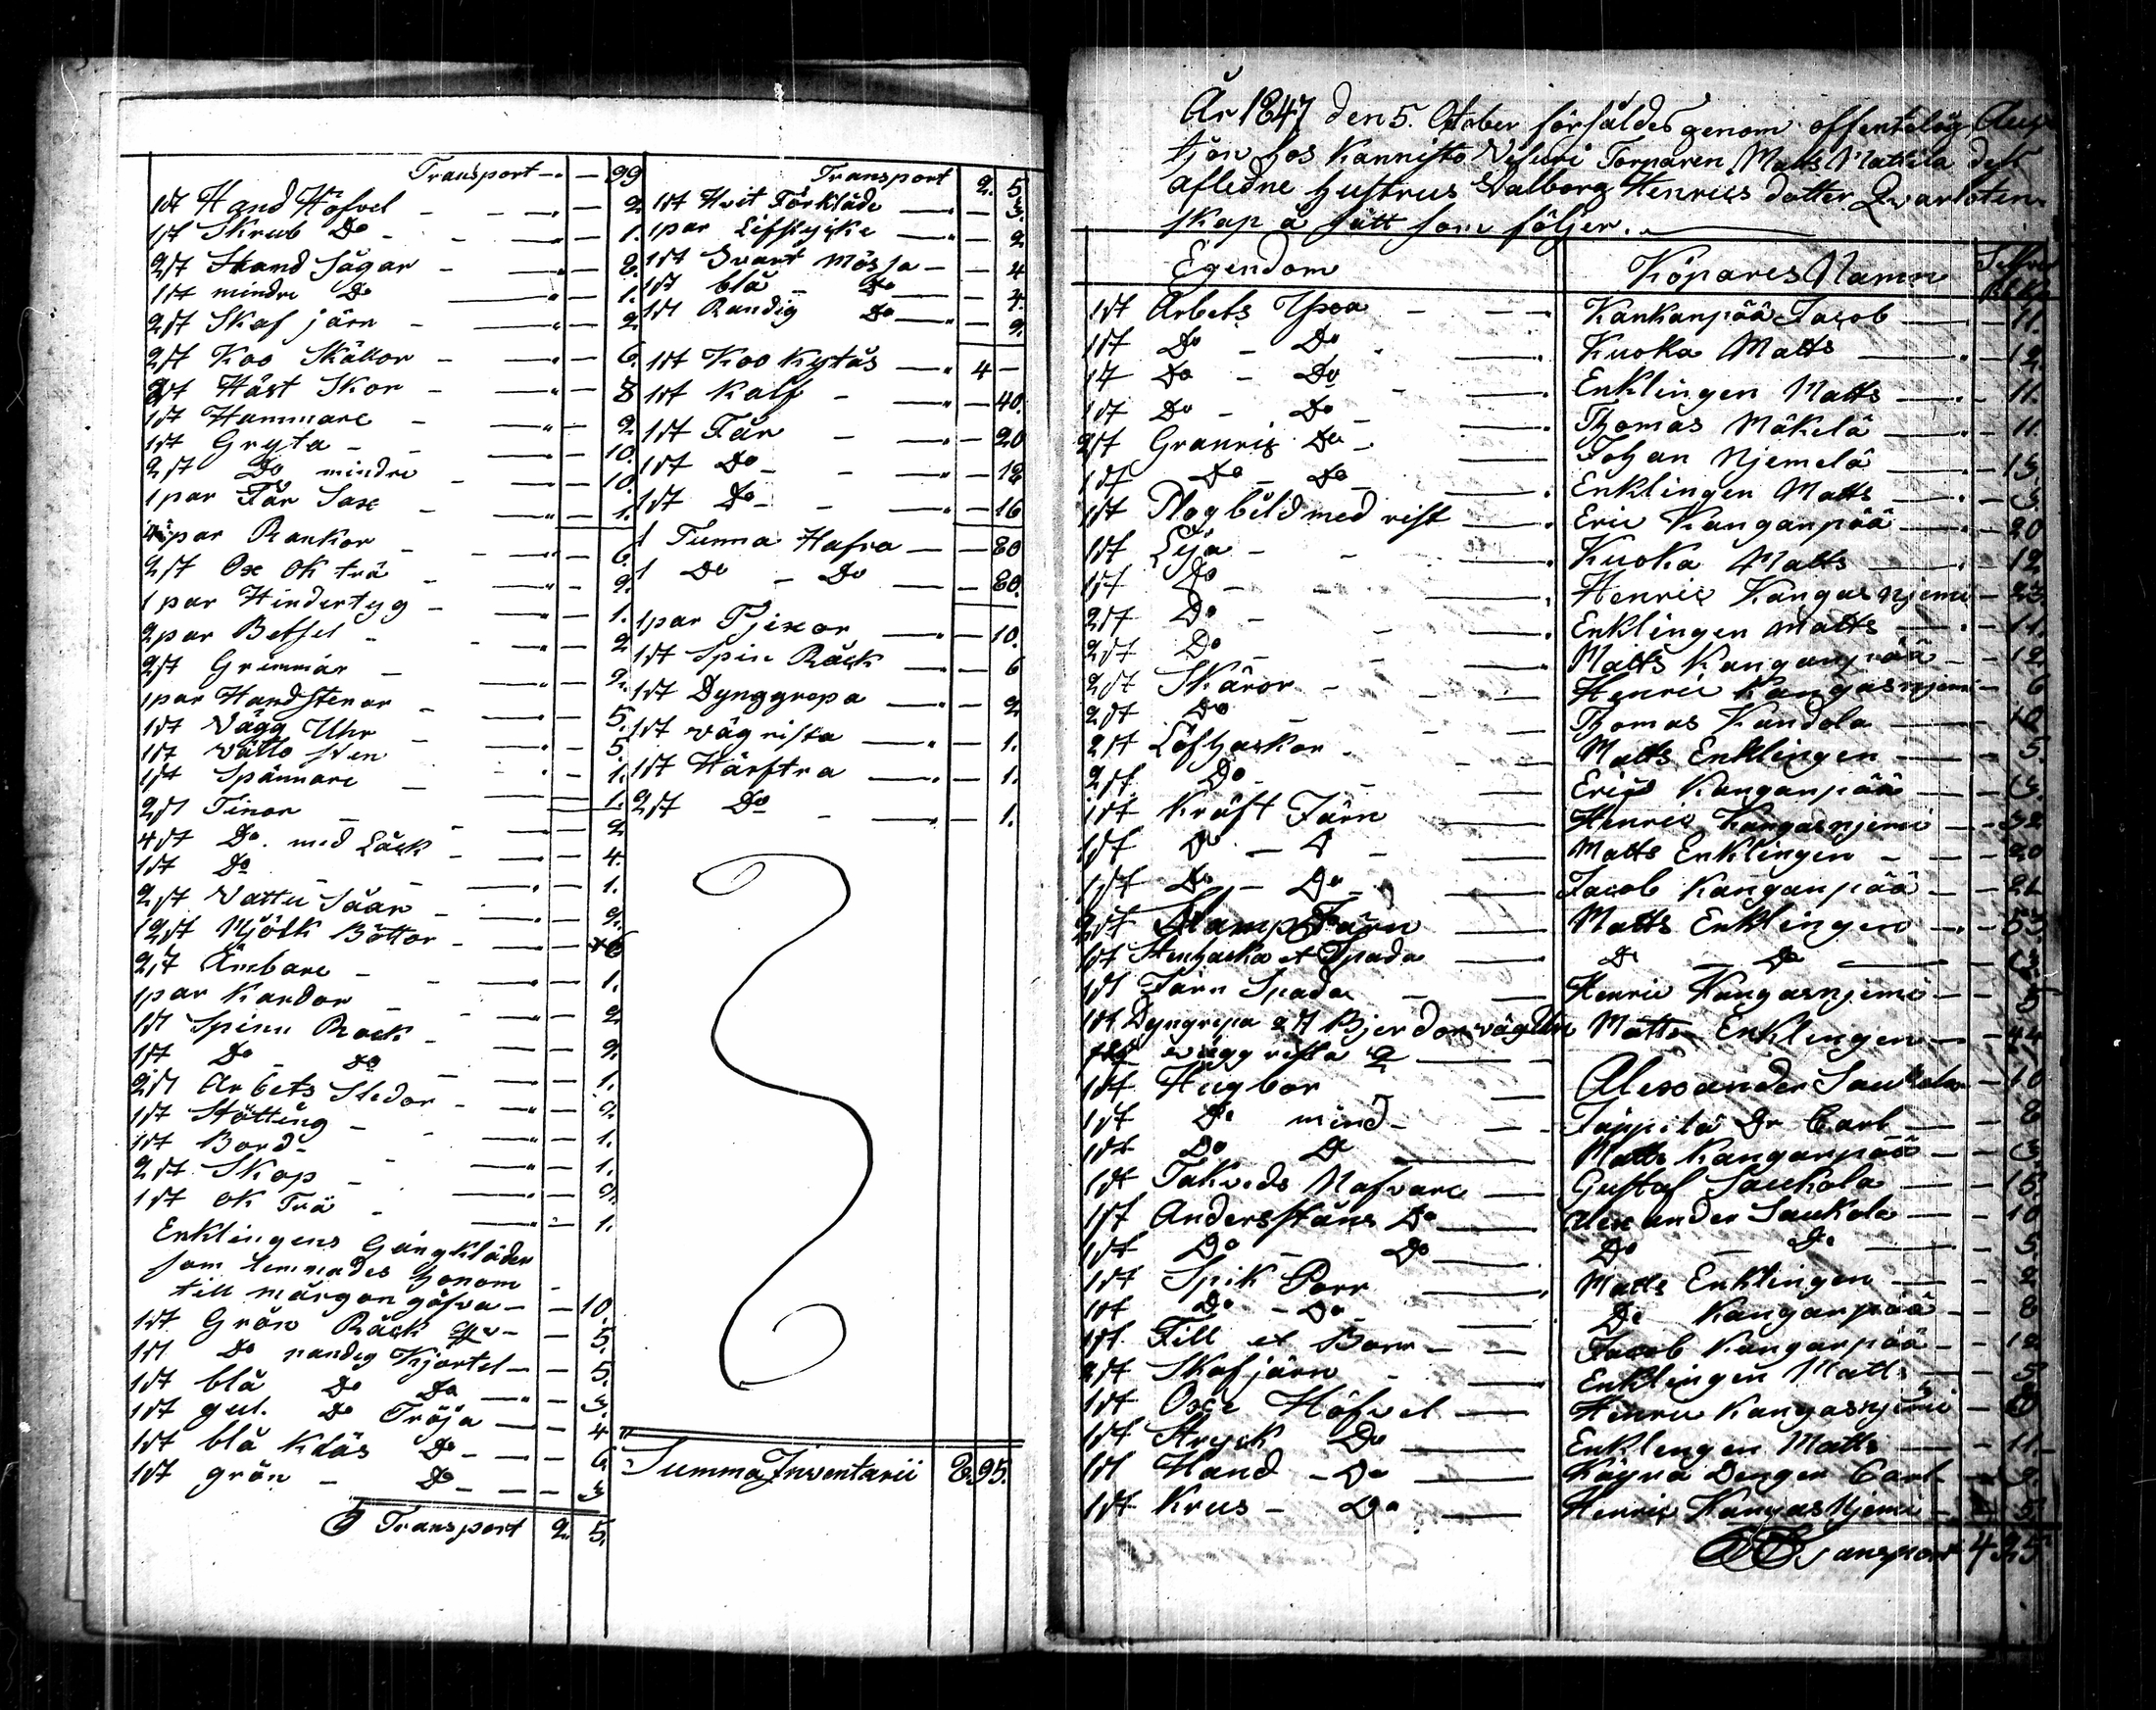 Transport — 99
1st Hand Höfvel — 2
1st Skrub Do — 1.
2st Hand Sågar — 2.
1st mindre Do — 1.
2st Skaf järn — 2
2st Koo Skällor — 6
2st Häst Skor — 8
1st Hammare — 2
1st Gryta — 10.
2st Do mindre — 10.
1 par Får Sax — 1.
par Rankor — 6.
2st Oxe Ok trä — 2.
1 par Hindertyg — 1.
2 par Betsel — 2
2st Grimmar — 2.
1 par Handstenar — 5.
1st Vägg Uhr — 5
1st Vätto sten — 1.
1st Spännare — 1.
2st Tinor — 2
4st Do. med Låck — 4.
1st Do — 1.
2st Vattu Såar — 2.
12st Mjölk Böttor — 6
2st Ämbare — 1.
1 par Kardor — 2
1st Spinn Rock — 2.
1st Do — Do — 1.
2st Arbets Sledar — 2.
1st Stötting — 1.
1st Bord — 1.
2st Skop — 2.
1st Ok Trä — 1.
Enklingens Gångkläder
som lemnades honom
till morgongåfva — 10.
1st Grön Råck — 5.
1st Do randig Kjortel — 5.
1st blå Do Do — 3.
1st gul. Do Tröja — 4
1st blå Kläs Do — 6.
1st grön — Do — 3
Transport 2. 5.
Transport 2. 5
1st Hvit Förkläde — 3.
1 par Lifstycke — 2
1st Svart Mössa — 4
1st blå — Do — 4.
1st Randig Do — 2.
1st Koo Kytäs — 4 —
1st Kalf — 40.
1st Får — 20
1st Do — 12
1st Do — 16
1 Tunna Hafra — 80
1 Do — Do — 80.
1 par Pjexor — 10.
1st Spin Råck — 6
1st Dynggrepa — 2
1st vägrista — 1.
1st Härftra — 1.
2st Do — 1.
Summa Inventarii 8. 95.
År 1847 den 5. October försåldes genom offentelig Auk
tjon hos Kannisto Vesuri Torparen Matts Mattila dess
afledne hustrus Valborg Henrics dotter Qvarlåten
skap å sätt som följer.
Egendom Köpares Namn
1st Arbets Yxa — Kankanpää Jacob — 11.
1st Do — Do — Kuoka Matts — 12.
1st Do — Do — Enklingen Matts — 11.
1st Do — Do — Thomas Mäkelä — 11
2st Granris Do — Johan Njemelä — 15.
1st Do — Do — Enklingen Matts — 3.
1st Plogbild med rist — Eric Kanganpää — 20
1st Lija — Kuoka Matts — 12
1st Do — Henric Kangasnjemi — 23.
2st Do — Enklingen Matts — 11.
2st Do — Matts Kanganpää — 12
2st Skäror — Henric Kangasnjemi — 6
2st Do — Thomas Kandola — 10
2st Löfhackor — Matts Enklingen — 5.
2st Do — Eric Kanganpää — 3.
1st Kräft Järn — Henric Kangasnjemi — 32
1st D — D — Matts Enklingen — 20
1st Do — Do — Jacob Kanganpää — 21
2st Stamp Järn — Matts Enklingen — 53
1st Stenhacka et Spada — D — Do — 3.
1st Järn Spada — Henric Kangasnjemi — 5
1st Dyngrepa 2st Matts Enklingen — 44
väggrista 2
1st Hugbor — Alexander Saukola — 10
1st Do mind — Jäppilä Dr Carl — 8
1st Do D — Matts Kanganpää — 3.
1st Takveds Nafvare — Gustaf Saukola — 15.
1st Andersståns Do — Alexander Saukola — 10
1st Do — Do — Do — Do — 5.
1st Spik Borr — Matts Enklingen — 2
1st Do — Do — Do Kanganpää — 8
1st Fill et Borr — Jacob Kanganpää — 12
2st Skafjärn — Enklingen Matts — 5
1st Oxe Höfvel — Henric Kangasnjemi
1st Stryck Do — Enklengen Matts — 11.
1st Hand — Do — Käyrä Drenger Carl — 2.
1st Krus — Do — Henric Kangasnjemi — 5.
Transport 4 25.